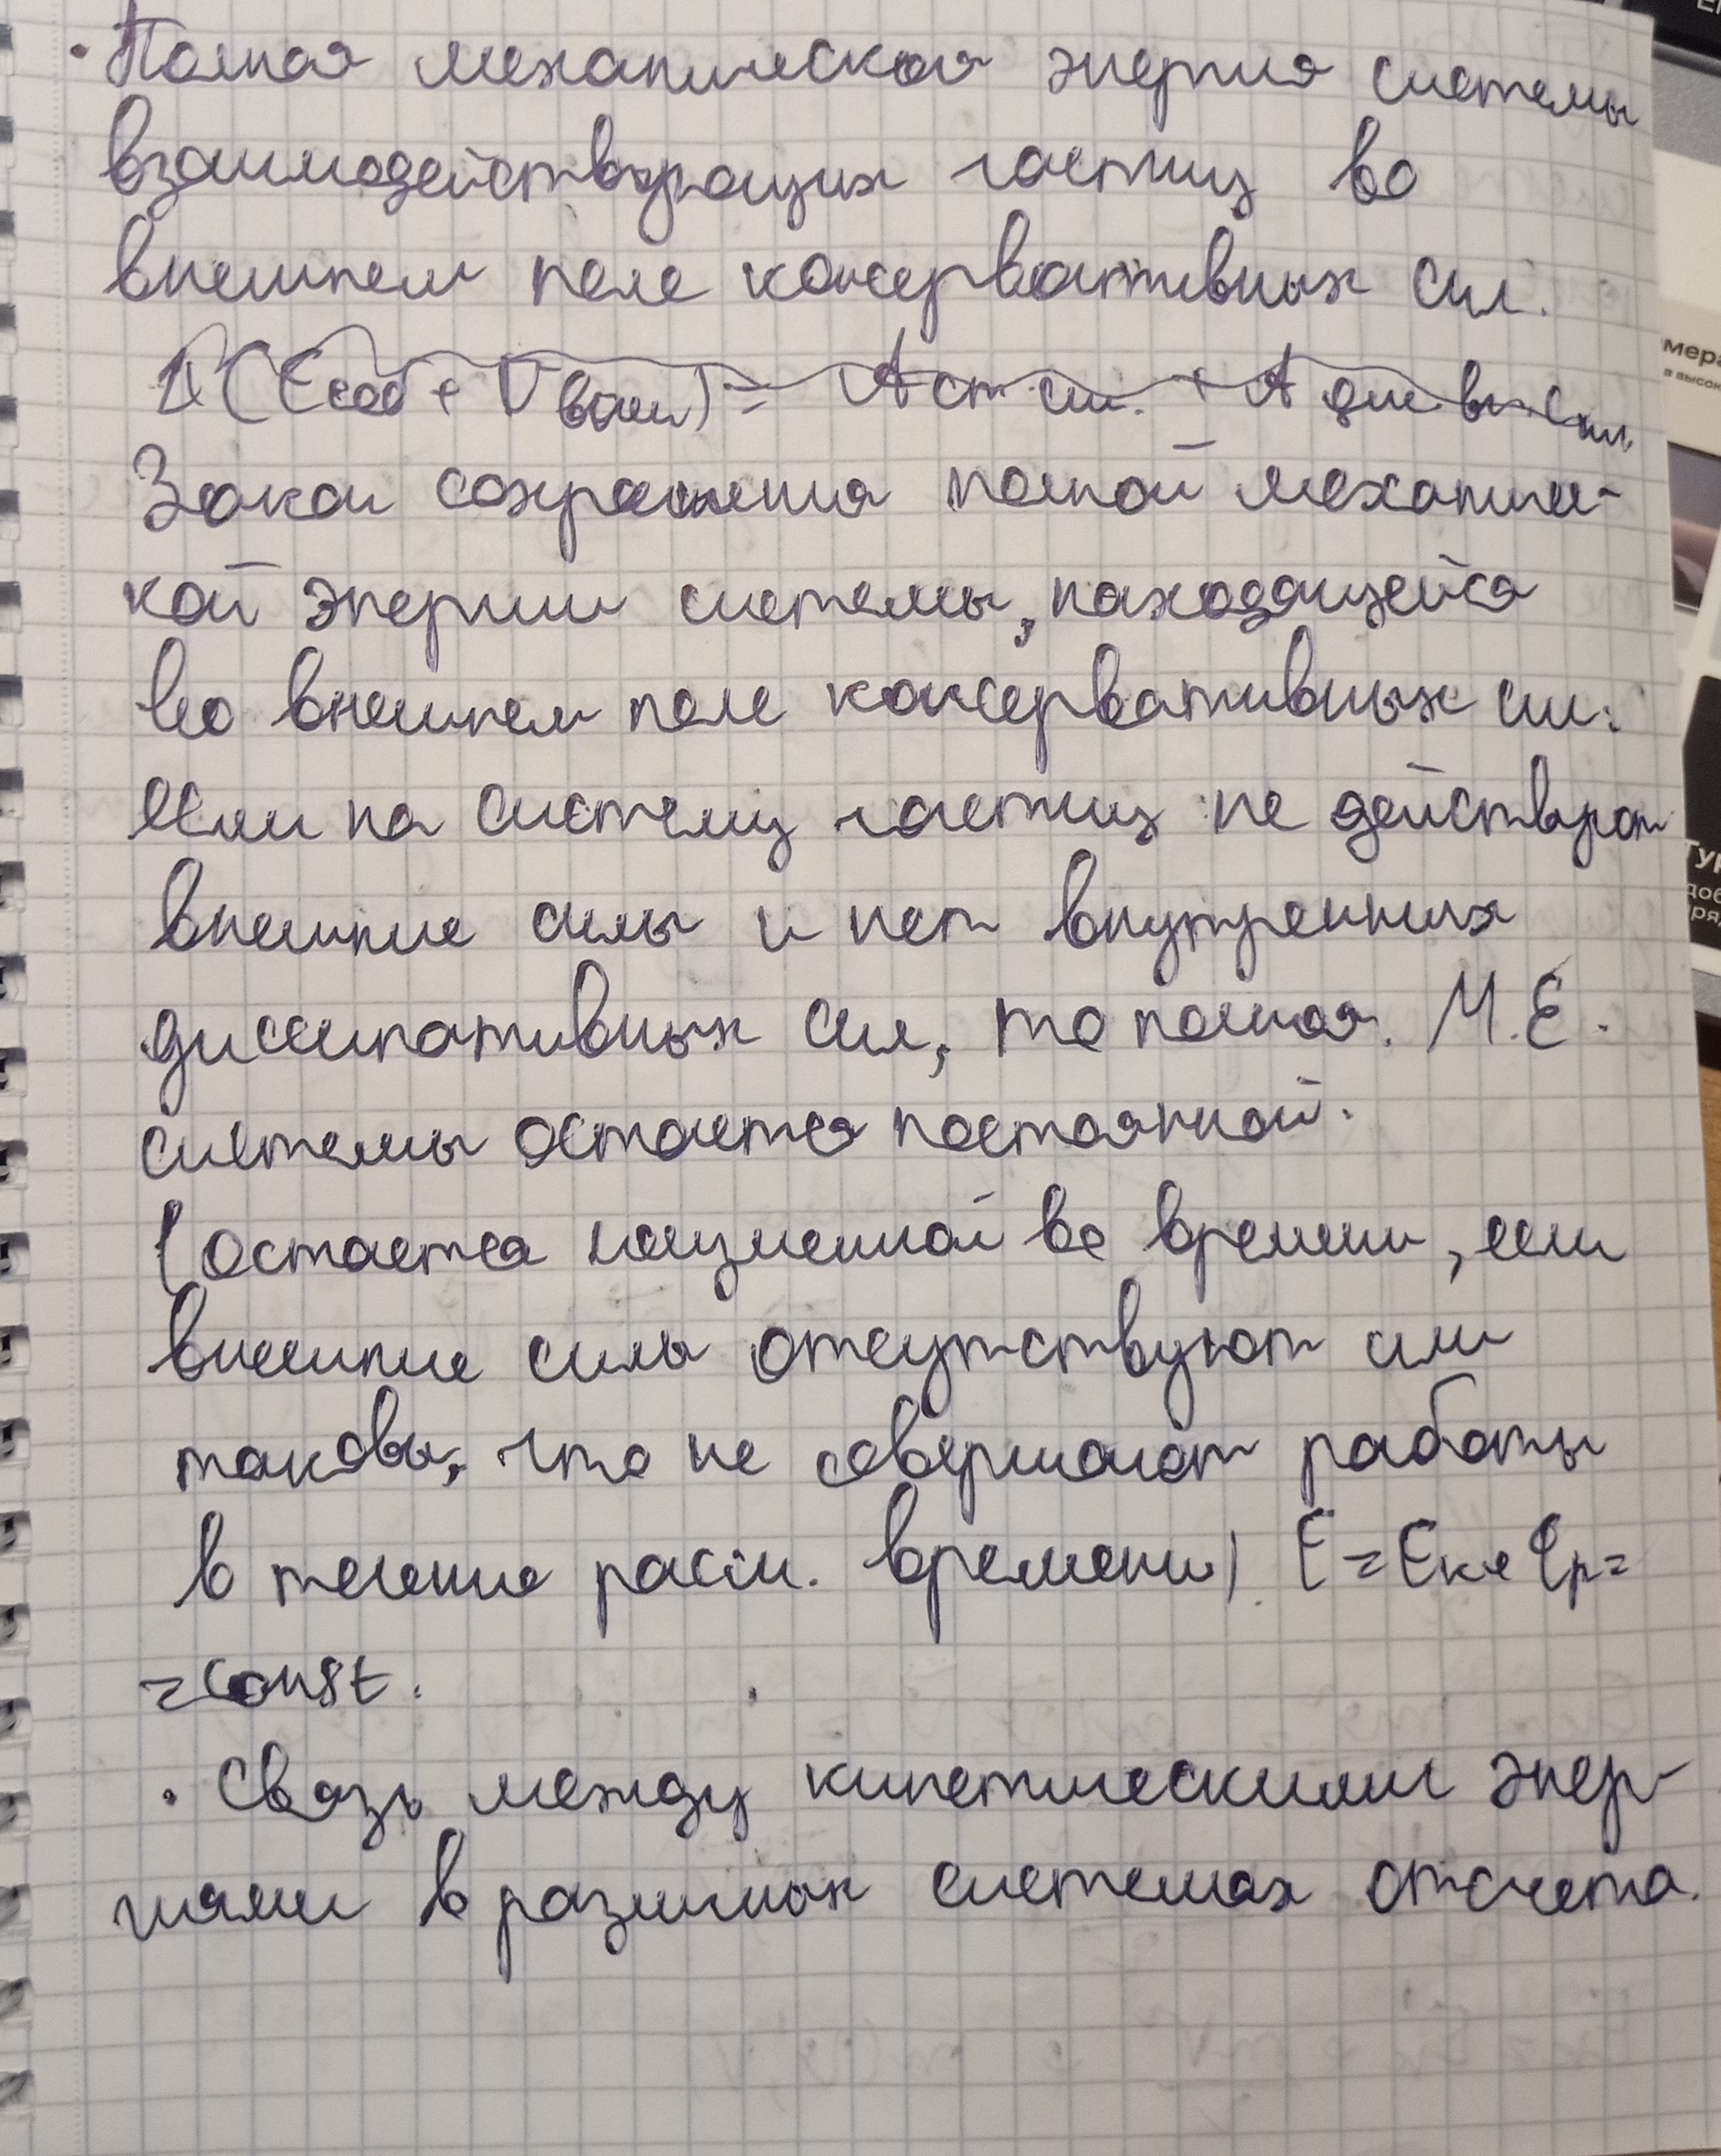 · Полная механическая энергия системы
взаимодействующих частиц во
внешнем поле консервативных сил.
Закон сохранения полной механичес-
кой энергии системы, находящейся
во внешнем поле консервативных сил:
Если на систему частиц не действуют
внешние силы и нет внутренних
диссипативных сил, то полная М.Е.
системы остается постоянной.
(остается неизменной во времени, если
внешние силы отсутствуют или
таковы, что не совершают работы
в течение рассм. времени). E=Eк+Ep=
=const.
· Связь между кинетическими энер-
гиями в различных системах отсчета.
мера
в высок
Ту
доб